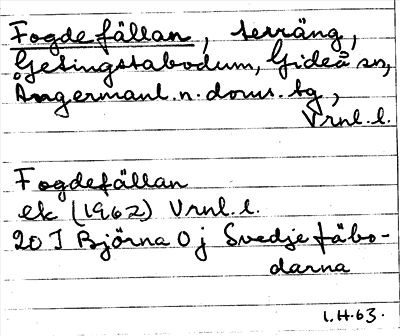 Fogdefällan, terräng,
Getingstabodum, Gideå sn,
Ångermanl. n. doms. tg,
Vrnl. l.
Fogdefällan
ek (1962) Vrnl. l.
20 I Björna O j Svedje fäbo-
darna
I.H.63.